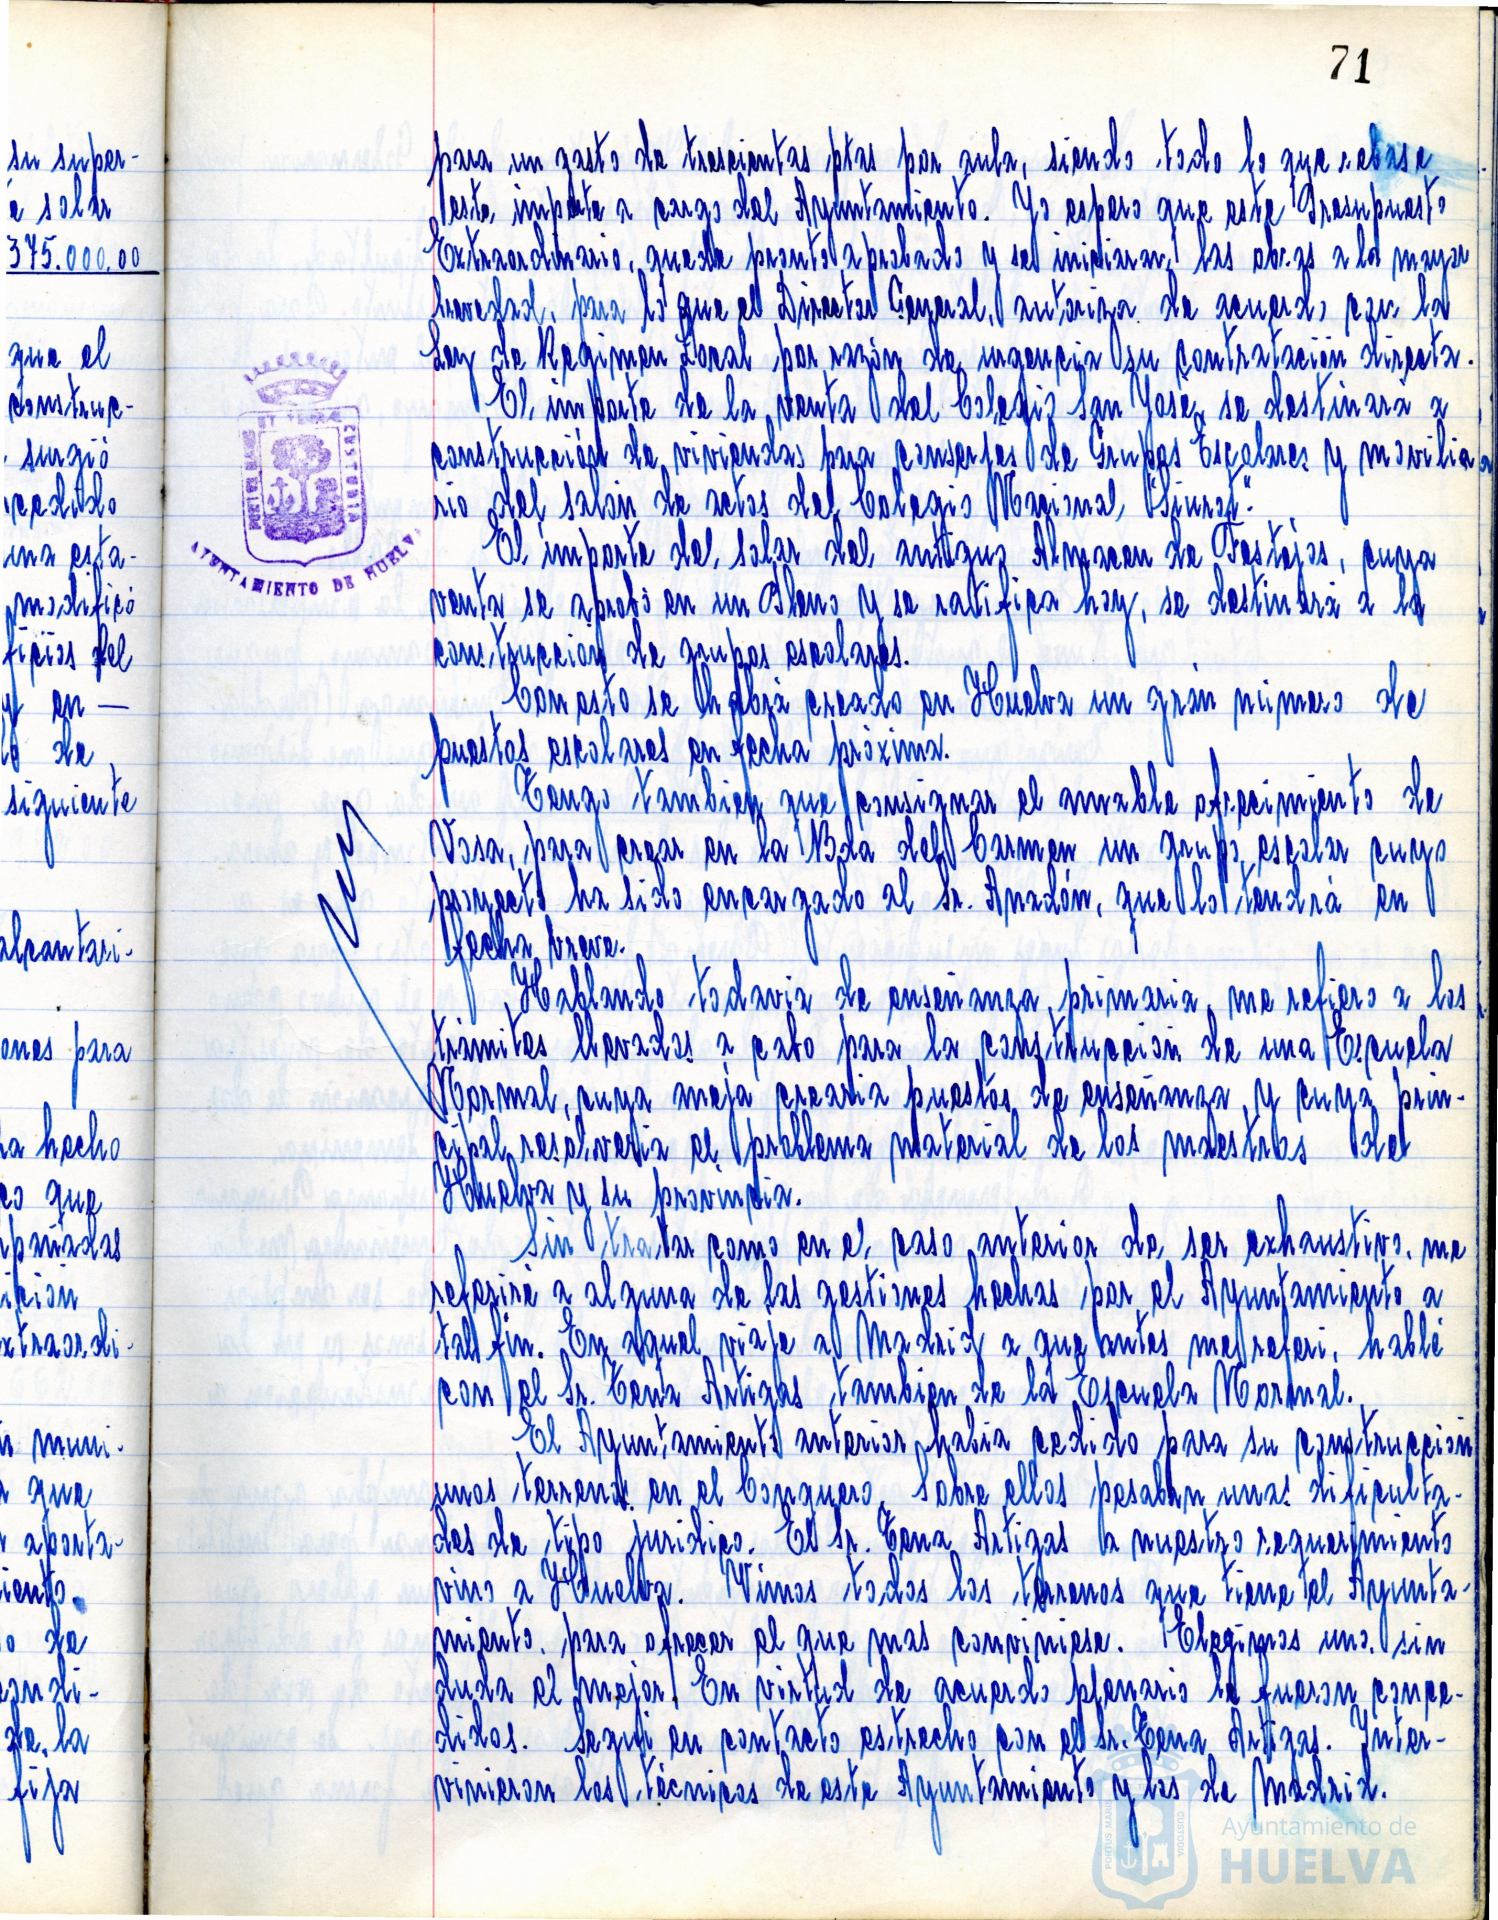 71
su super-
e solar
375.000,00
que el
construc-
surgió
cedido
una esta-
modificó
ficios del
y en —
de
siguiente
alcantari-
ones para
ha hecho
co que
pañadas
ición
xtraordi-
muni-
que
aporta-
iento.
o de
condi-
de la
fija
PORTUS MARIS ET TERRAE CUSTODIA
AYUNTAMIENTO DE HUELVA
para un gasto de trescientas ptas por aula, siendo todo lo que rebase
este importe a cargo del Ayuntamiento. Yo espero que este Presupuesto
Extraordinario, quede pronto aprobado y se iniciaran las obras a la mayor
brevedad, para lo que el Director General, autoriza de acuerdo con la
Ley de Regimen Local por razón de urgencia su contratación directa.
El importe de la venta del Colegio San Jose, se destinará a
construcción de viviendas para conserjes de Grupos Escolares y movilia
rio del salón de actos del Colegio Nacional "Siurot".
El importe del solar del antiguo Almacen de Festejos, cuya
venta se aprobó en un Pleno y se ratifica hoy, se destinará a la
construccion de grupos escolares.
Con esto se habrá creado en Huelva un grán número de
puestos escolares en fecha próxima.
Tengo tambien que consignar el amable ofrecimiento de
Vosa, para crear en la Bda del Carmen un grupo escolar cuyo
proyecto ha sido encargado al Sr. Anadón, que lo tendrá en
fecha breve.
Hablando todavia de enseñanza primaria, me refiero a los
trámites llevados a cabo para la construcción de una Escuela
Normal, cuya aneja crearia puestos de enseñanza y cuya prin-
cipal resolveria el problema material de los maestros de
Huelva y su provincia.
Sin tratar como en el caso anterior de ser exhaustivo, me
referiré a alguna de las gestiones hechas por el Ayuntamiento a
tal fin. En aquel viaje a Madrid a que antes me referi, hablé
con el Sr. Tena Artigas tambien de la Escuela Normal.
El Ayuntamiento anterior habia cedido para su construccion
unos terrenos en el Conquero. Sobre ellos pesaban unas dificulta-
des de tipo juridico. El Sr. Tena Artigas a nuestro requerimiento
vino a Huelva. Vimos todos los terrenos que tiene el Ayunta-
miento para ofrecer el que mas conviniese. Elegimos uno sin
duda el mejor. En virtud de acuerdo plenario le fueron conce-
didos. Segui en contacto estrecho con el Sr. Tena Artigas. Inter-
vinieron los técnicos de este Ayuntamiento y los de Madrid.
PORTUS MARIS CUSTODIA
Ayuntamiento de
HUELVA